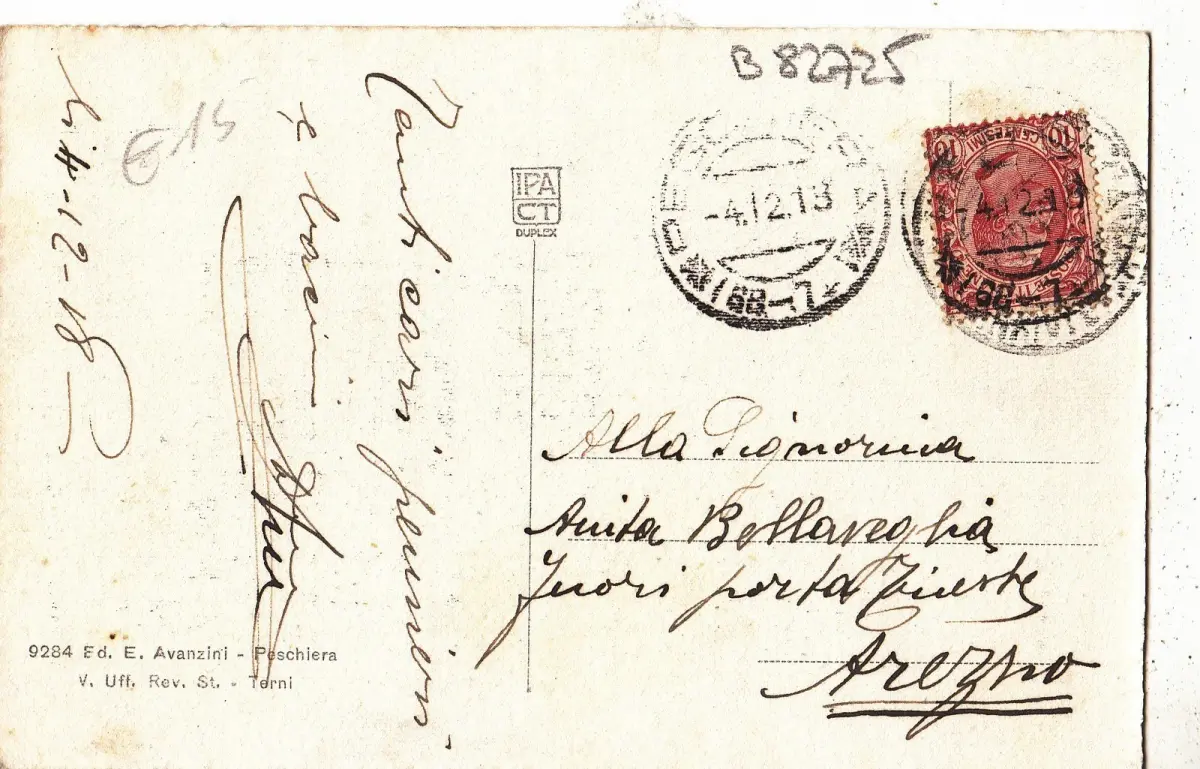 B 82725
€ 15
lì 4-12-18-
Tanti cari pensieri
e bacini
IPA
CT
DUPLEX
-4.12.18
10 CENTESIMI 10
-4.12.18
Alla Signorina
Anita Bellaveglia
Fuori porta Trieste
Arezzo
9284 Ed. E. Avanzini - Peschiera
V. Uff. Rev. St. - Terni